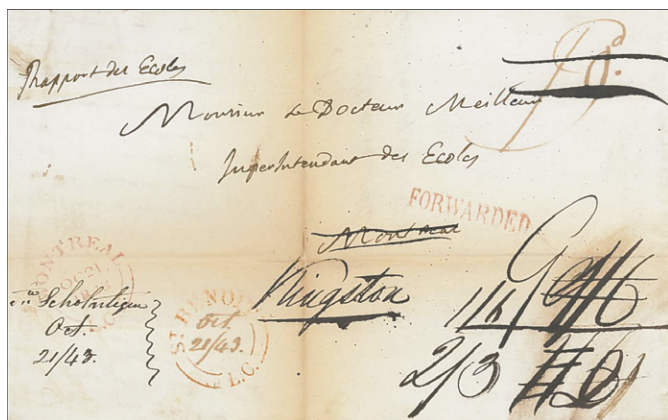 Rapport des Ecoles
9d.
Monsieur Le Docteur Meilleur
Superintendant des Ecoles
FORWARDED
Montreal
Kingston
MONTREAL
OC 21
Ste Scholastique
Oct.
21/43.
ST BENOIT
Oct.
21/43.
L.C.
1/6
2/3